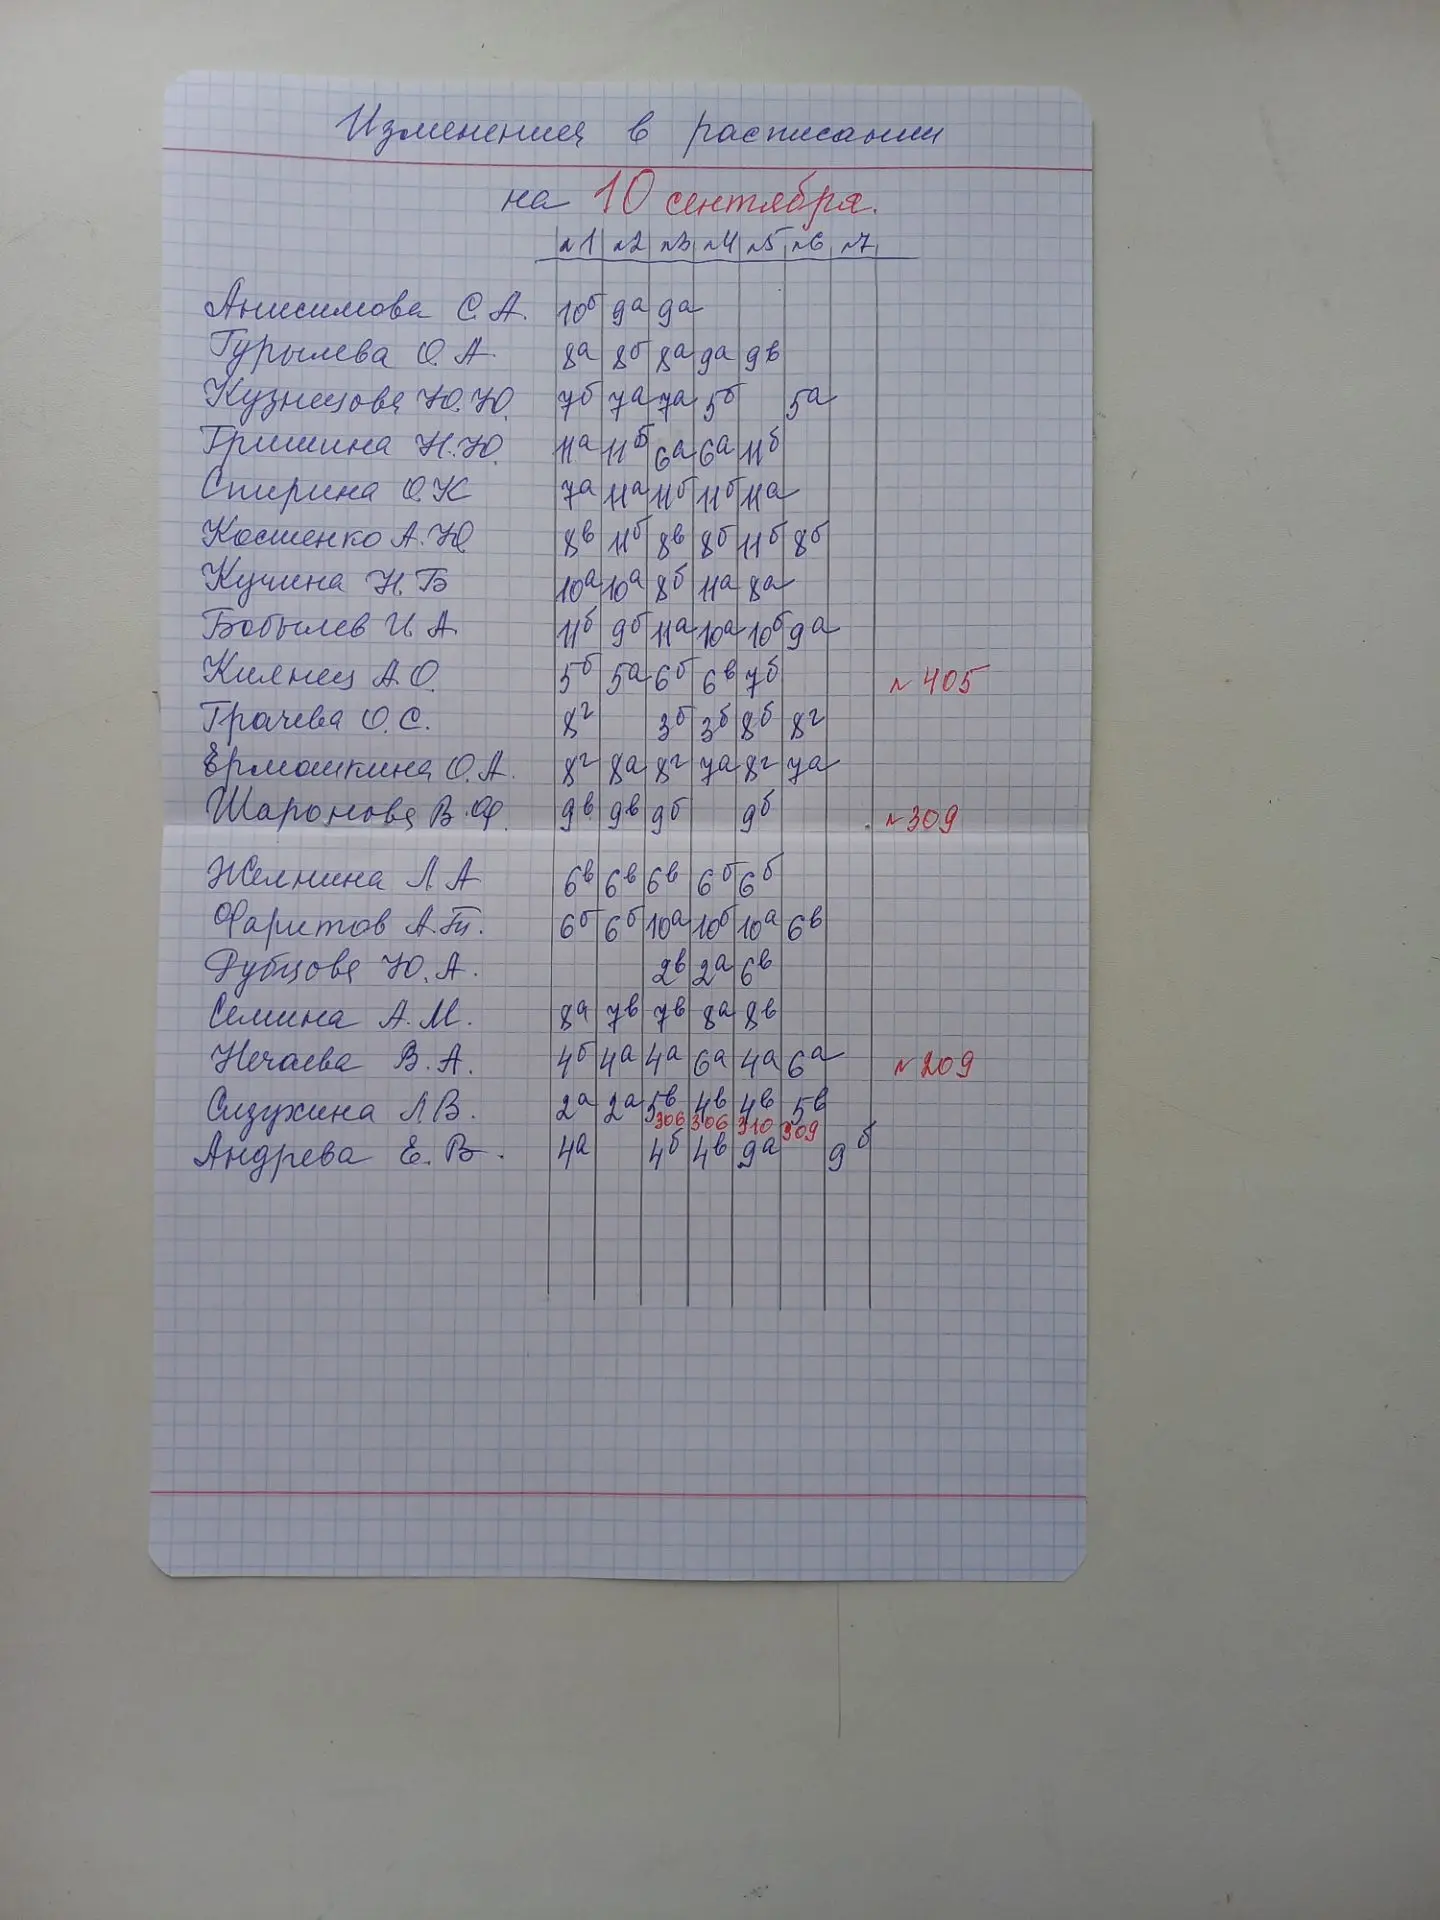 Изменения в расписании
на 10 сентября.
№1 №2 №3 №4 №5 №6 №7
Анисимова С.А. 10б 9а 9а
Гурылева О.А. 8а 8б 8а 9а 9в
Кузнецова Ю.Ю. 7б 7а 7а 5б 5а
Гришина Н.Ю. 11а 11б 6а 6а 11б
Спирина О.К 7а 11а 11б 11б 11а
Косшенко А.Ю 8в 11б 8в 8б 11б 8б
Кучина Н.Б 10а 10а 8б 11а 8а
Бобылев И.А. 11б 9б 11а 10а 10б 9а
Килнец А.О. 5б 5а 6б 6в 7б №405
Грачева О.С. 8г 3б 3б 8б 8г
Ермошкина О.А. 8г 8а 8г 7а 8г 7а
Шаронова В.Ф. 9в 9в 9б 9б №309
Желнина Л.А 6в 6в 6в 6б 6б
Фаритов А.Гт. 6б 6б 10а 10б 10а 6в
Рубцова Ю.А. 2в 2а 6в
Семина А.М. 8а 7в 7в 8а 8в
Нечаева В.А. 4б 4а 4а 6а 4а 6а №209
Слзухина Л.В. 2а 2а 5в 4в 4в 5в
306 306 310 309
Андрева Е.В. 4а 4б 4в 9а 9б